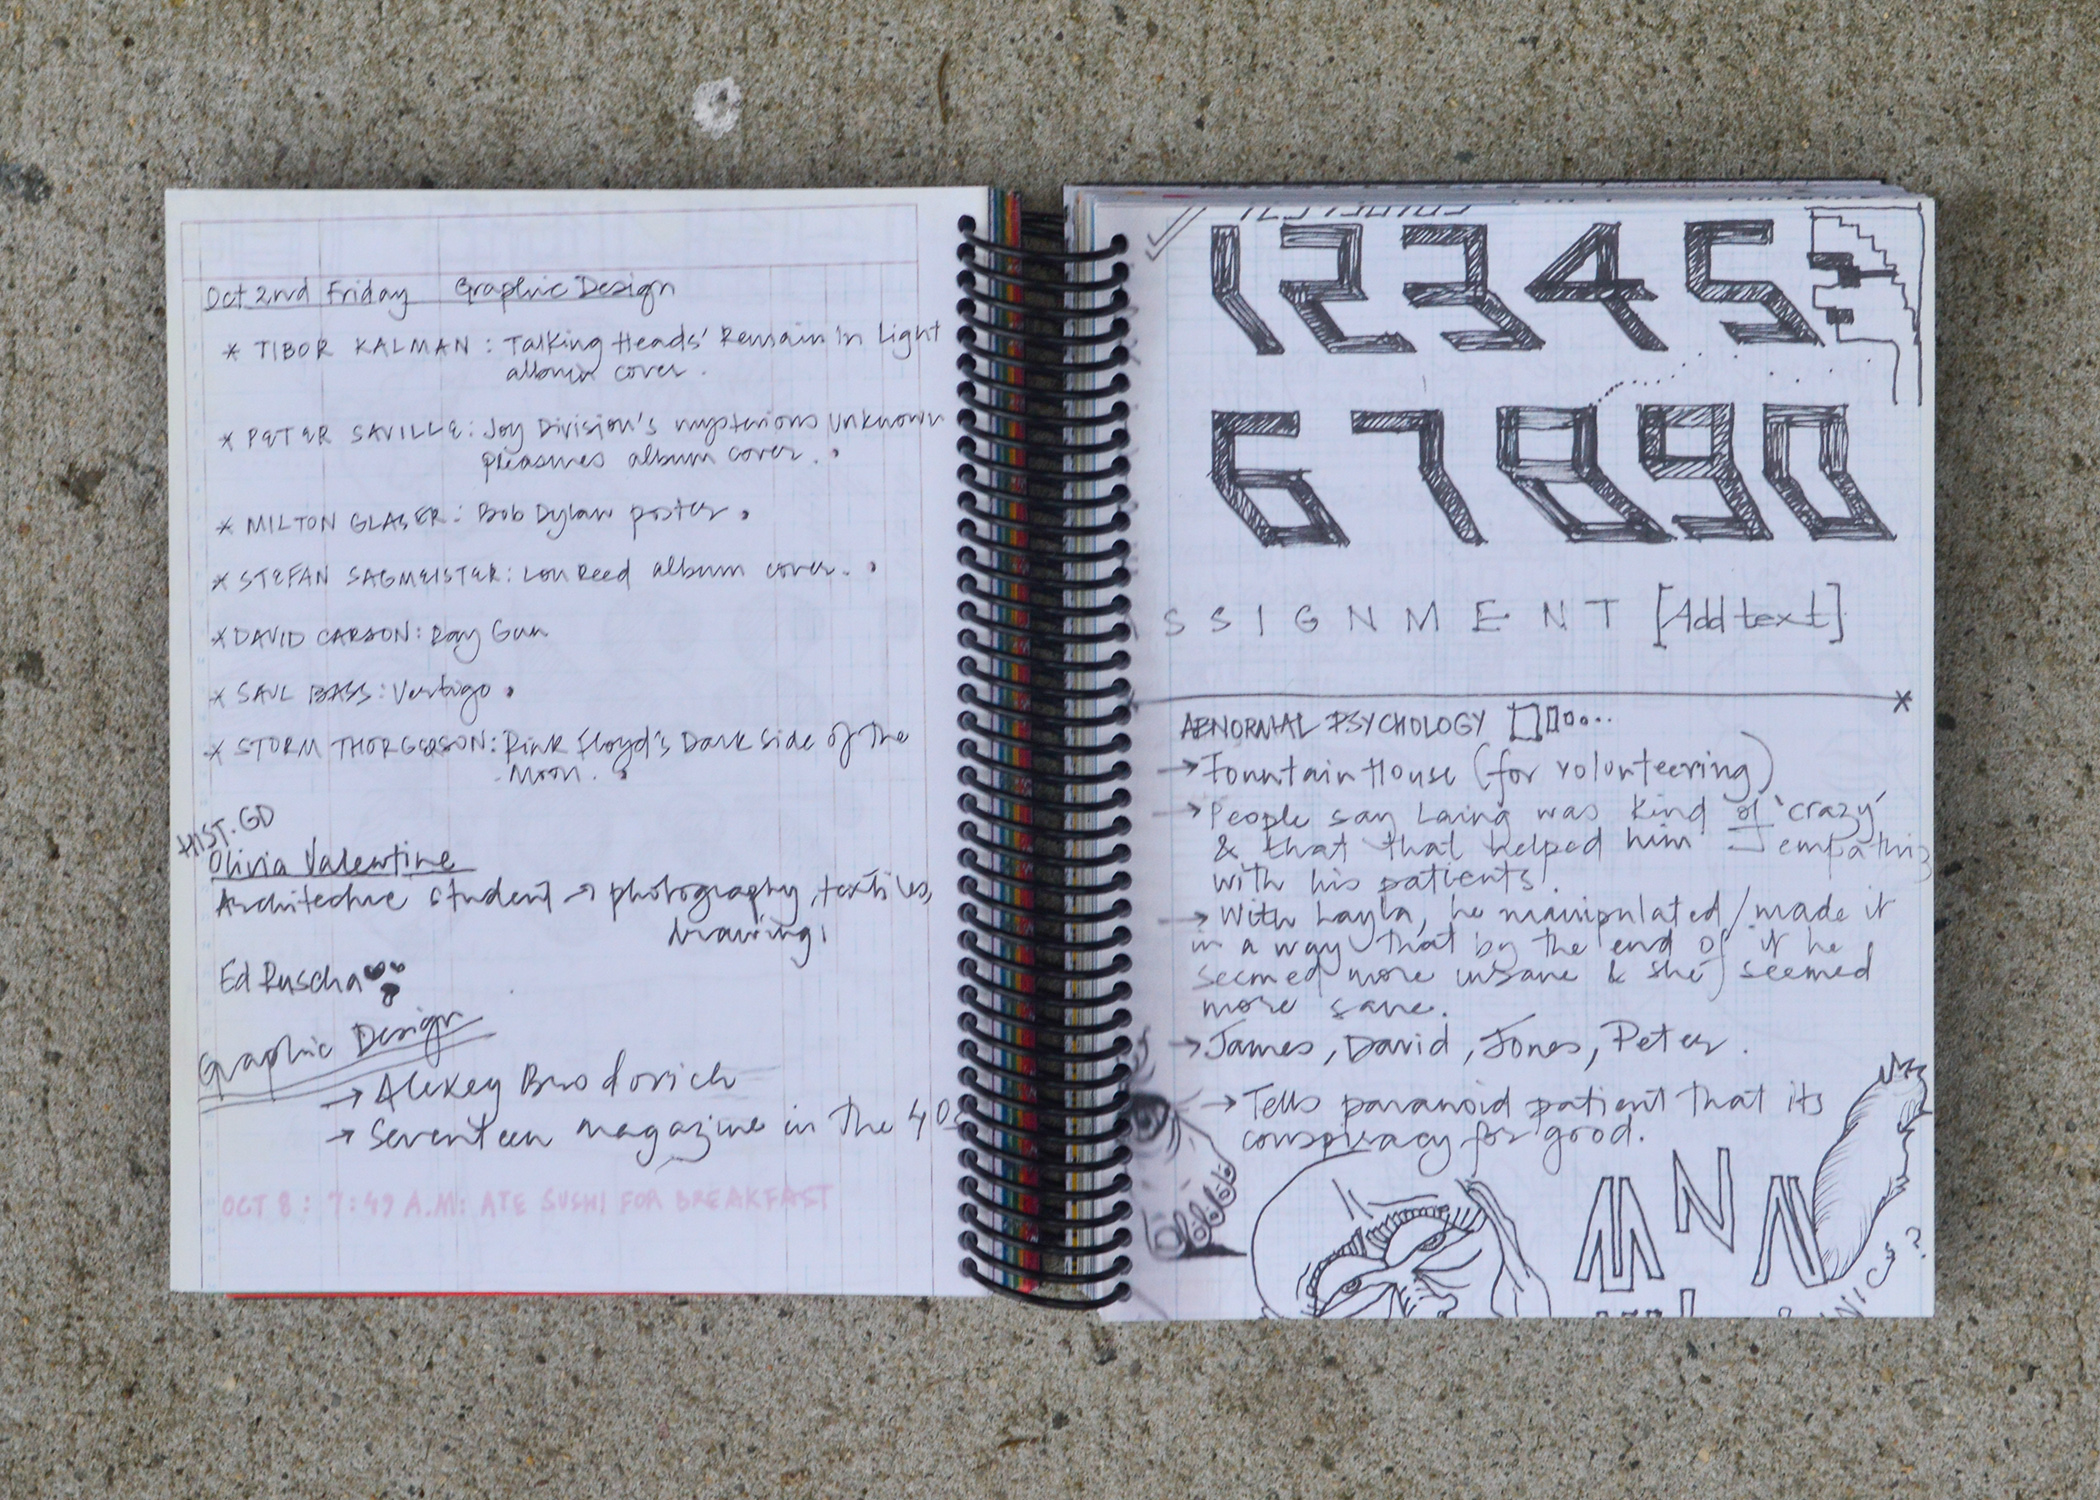 Oct 2nd Friday Graphic Design
* TIBOR KALMAN : Talking Heads' Remain In Light
album cover.
* PETER SAVILLE: Joy Division's mysterious unknown
pleasures album cover.
* MILTON GLASER: Bob Dylan poster.
* STEFAN SAGMEISTER: Lou Reed album cover.
* DAVID CARSON: Ray Gun
* SAUL BASS: Vertigo.
* STORM THORGERSON: Pink Floyd's Dark side of the
Moon.
HIST. GD
Olivia Valentine
Architecture student → photography, textiles,
drawing,
Ed Ruscha
Graphic Design
→ Alexey Brodovich
→ Seventeen magazine in the 40s
OCT 8: 7:47 A.M: ATE SUSHI FOR BREAKFAST
1 2 3 4 5
6 7 8 9 0
SSIGNMENT [Add text]
ABNORMAL PSYCHOLOGY
→ Fountain House (for volunteering)
→ People say Laing was kind of 'crazy'
& that that helped him empathiz
with his patients.
→ With Layla, he manipulated/made it
in a way that by the end of it he
seemed more insane & she seemed
more sane.
→ James, David, Jones, Peter.
→ Tells paranoid patient that its
conspiracy for good.